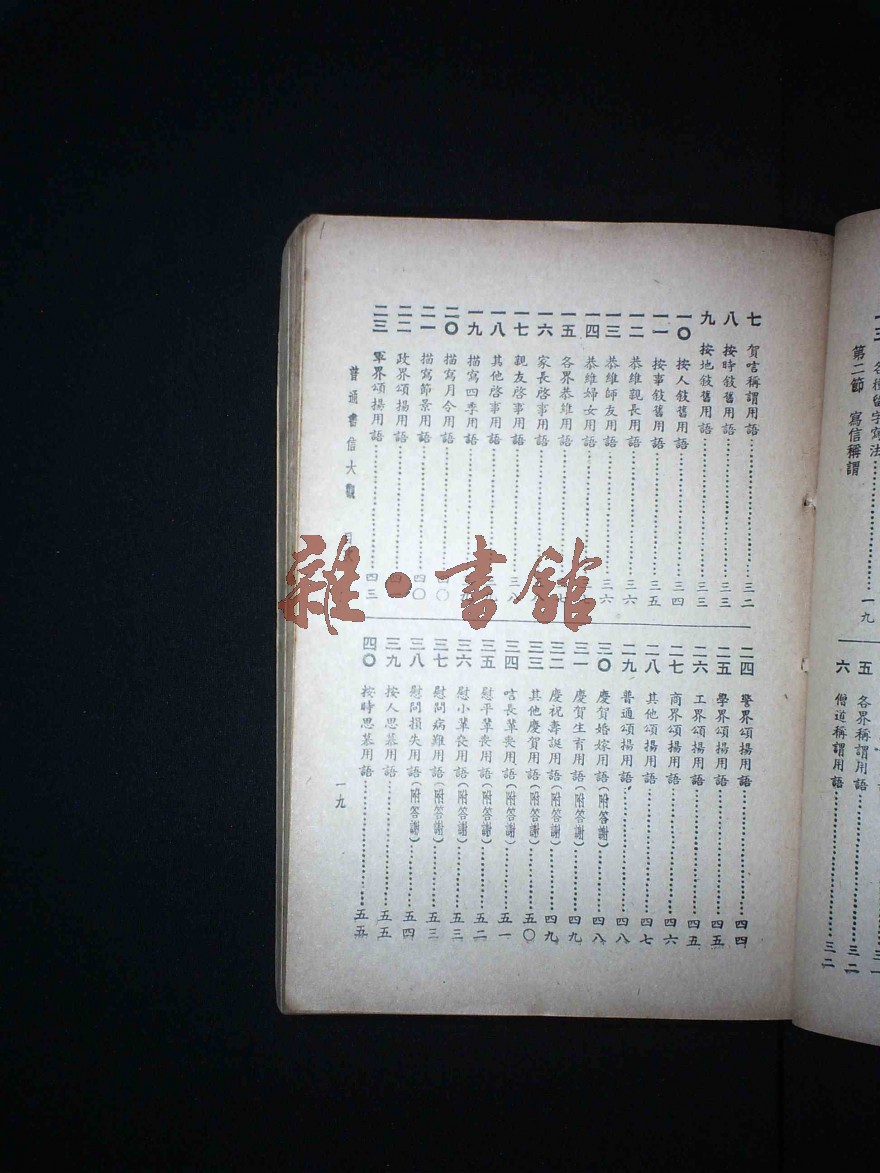 各種留字寫法……一九
第二節 寫信稱謂
五 各界稱謂用語……三二
六 僧道稱謂用語……三二
七 賀唁稱謂用語……三二
八 按時敍舊用語……三三
九 按地敍舊用語……三三
一〇 按人敍舊用語……三四
一一 按事敍舊用語……三五
一二 恭維親長用語……三六
一三 恭維師友用語……三六
一四 恭維婦女用語……
一五 各界恭維用語……七
一六 家長啓事用語……
一七 親友啓事用語……三八
一八 其他啓事用語……
一九 描寫四季用語……
二〇 描寫月令用語……〇
二一 描寫節景用語……四〇
二二 政界頌揚用語……
二三 軍界頌揚用語……四三
二四 警界頌揚用語……四四
二五 學界頌揚用語……四五
二六 工界頌揚用語……四五
二七 商界頌揚用語……四六
二八 其他頌揚用語……四七
二九 普通頌揚用語……四八
三〇 慶賀婚嫁用語(附答謝)……四八
三一 慶賀生育用語(附答謝)……四九
三二 慶祝壽誕用語(附答謝)……四九
三三 其他慶賀用語(附答謝)……五〇
三四 唁長輩喪用語(附答謝)……五一
三五 慰平輩喪用語(附答謝)……五二
三六 慰小輩喪用語(附答謝)……五三
三七 慰問病難用語(附答謝)……五三
三八 慰問損失用語(附答謝)……五四
三九 按人思慕用語……五五
四〇 按時思慕用語……五五
普通書信大觀 目
一九
雜·書館